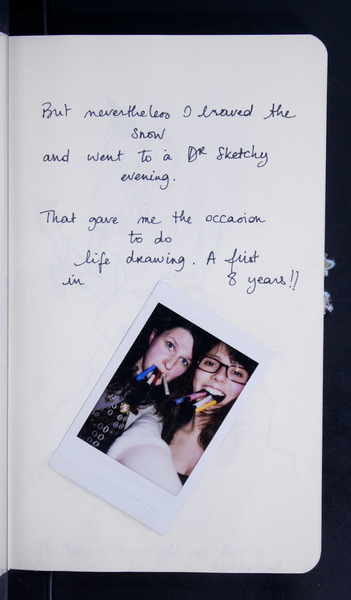 But nevertheless I braved the
snow
and went to a DR Sketchy
evening.
That gave me the occasion
to do
life drawing. A first
in 8 years!!